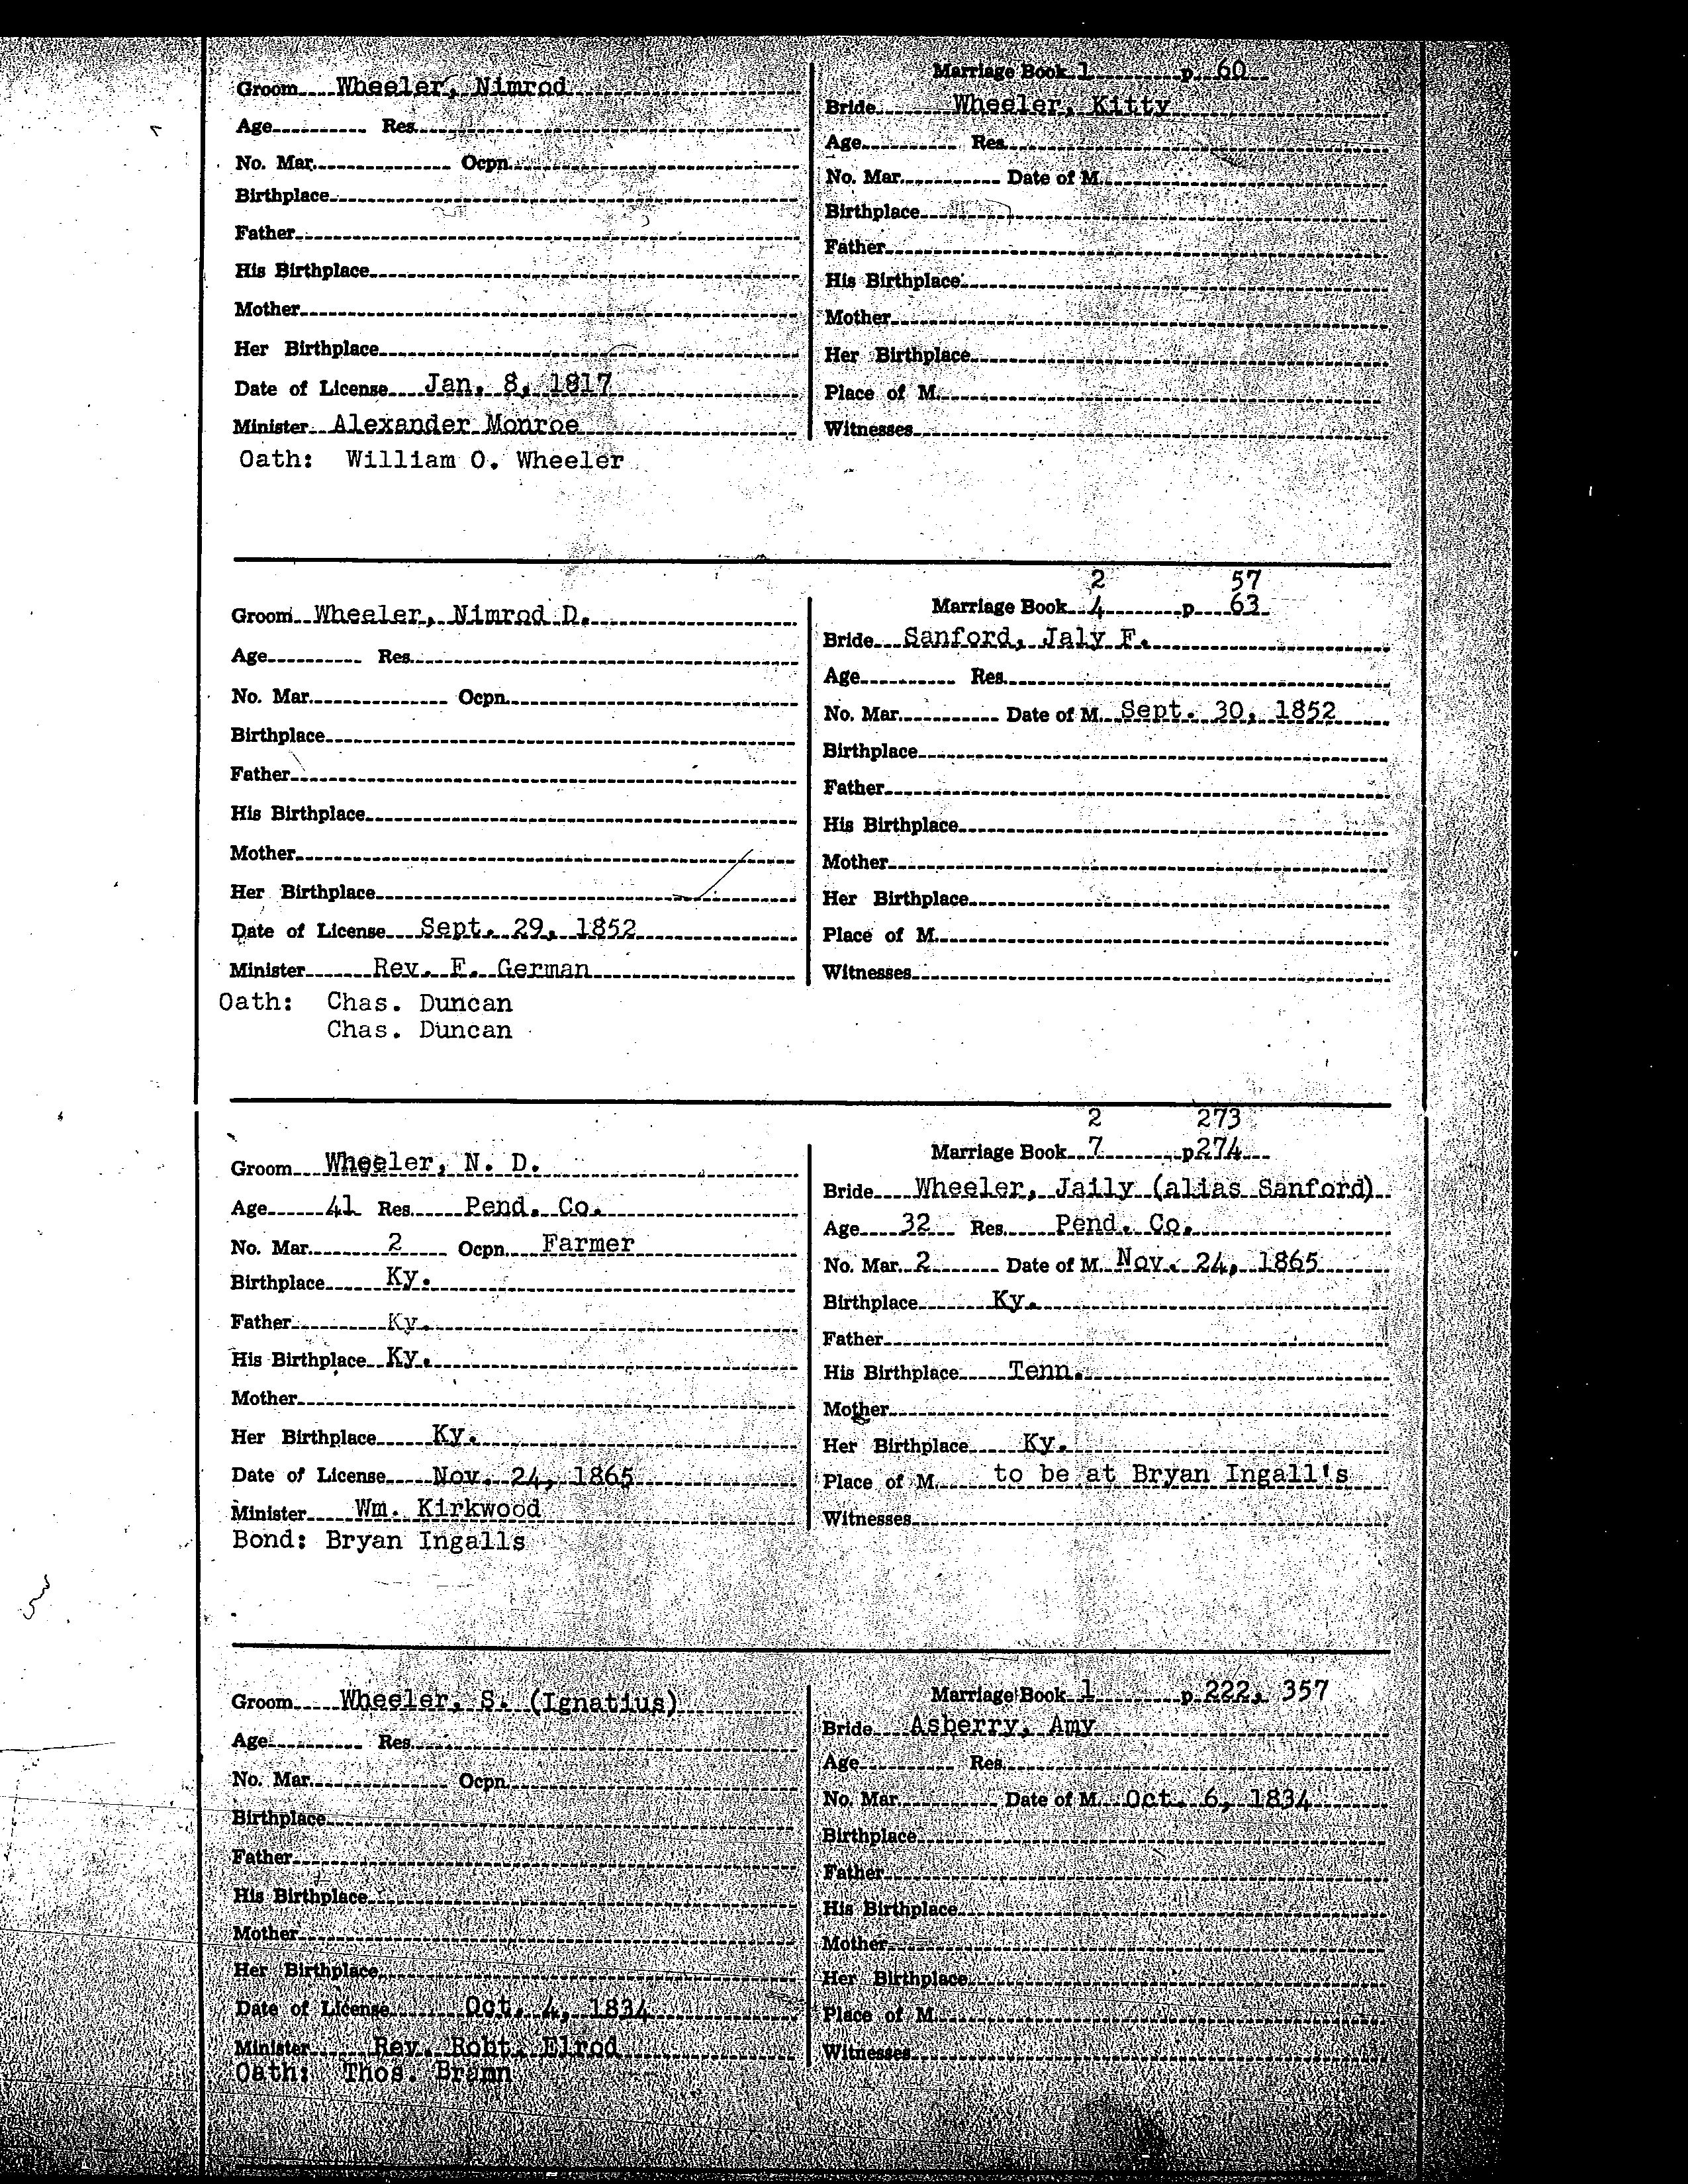 Groom Wheeler, Nimrod
Age Res.
No. Mar. Ocpn.
Birthplace
Father
His Birthplace
Mother
Her Birthplace
Date of License Jan. 8, 1817
Minister Alexander Monroe
Oath: William O. Wheeler
Marriage Book 1 p. 60
Bride Wheeler, Kitty
Age Res.
No. Mar. Date of M.
Birthplace
Father
His Birthplace
Mother
Her Birthplace
Place of M.
Witnesses
Groom Wheeler, Nimrod D.
Age Res.
No. Mar. Ocpn.
Birthplace
Father
His Birthplace
Mother
Her Birthplace
Date of License Sept. 29, 1852
Minister Rev. F. German
Oath: Chas. Duncan
Chas. Duncan
2 57
Marriage Book 4 p. 63
Bride Sanford, Jaly F.
Age Res.
No. Mar. Date of M. Sept. 30, 1852
Birthplace
Father
His Birthplace
Mother
Her Birthplace
Place of M.
Witnesses
Groom Wheeler, N. D.
Age 41 Res. Pend. Co.
No. Mar. 2 Ocpn. Farmer
Birthplace Ky.
Father Ky.
His Birthplace Ky.
Mother
Her Birthplace Ky.
Date of License Nov. 24, 1865
Minister Wm. Kirkwood
Bond: Bryan Ingalls
2 273
Marriage Book 7 p 274
Bride Wheeler, Jaily (alias Sanford)
Age 32 Res. Pend. Co.
No. Mar. 2 Date of M. Nov. 24, 1865
Birthplace Ky.
Father
His Birthplace Tenn.
Mother
Her Birthplace Ky.
Place of M. to be at Bryan Ingall's
Witnesses
Groom Wheeler, S. (Ignatius)
Age Res.
No. Mar. Ocpn.
Birthplace
Father
His Birthplace
Mother
Her Birthplace
Date of License Oct. 4, 1834
Minister Rev. Robt. Elrod
Oath: Thos. Brann
Marriage Book 1 p. 222, 357
Bride Asberry, Amy
Age Res.
No. Mar. Date of M. Oct. 6, 1834
Birthplace
Father
His Birthplace
Mother
Her Birthplace
Place of M.
Witnesses